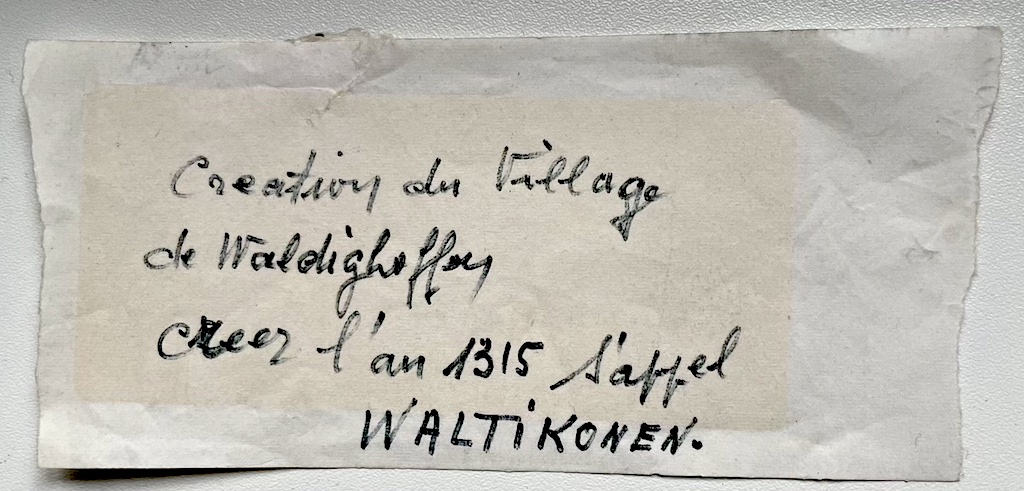 Creation du Village
de Waldighoffen
creer l'an 1315 s'appel
WALTiKONEN.